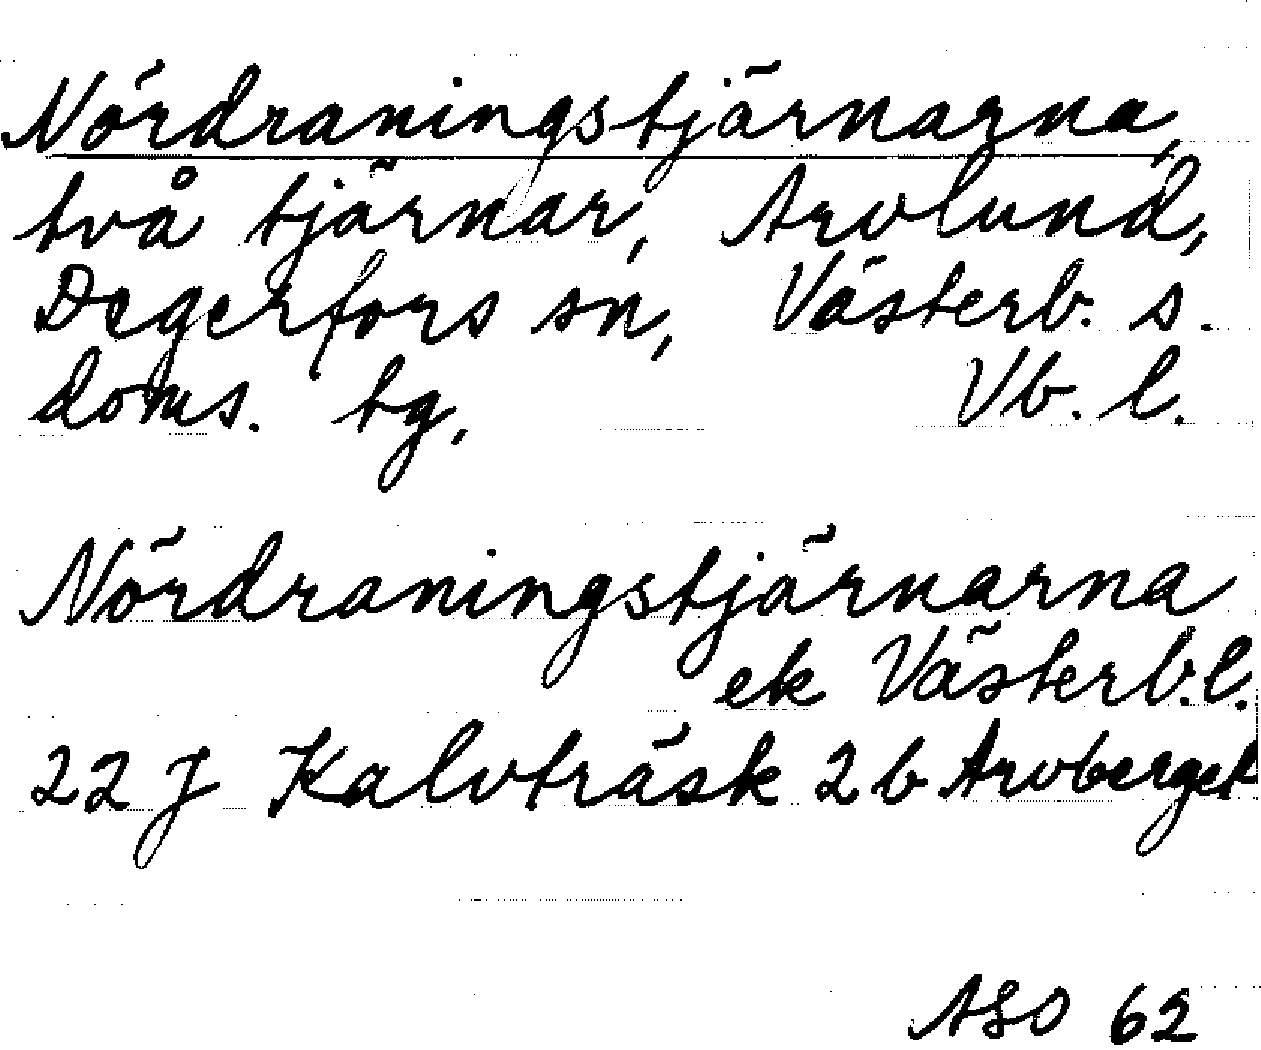 Nördraningstjärnarna,
två tjärnar, Arvlund,
Degerfors sn, Västerb. s.
doms. tg, Vb. l.
Nördraningstjärnarna
ek Västerb. l.
22 J Kalvträsk 2 b Arvberget
ASO 62